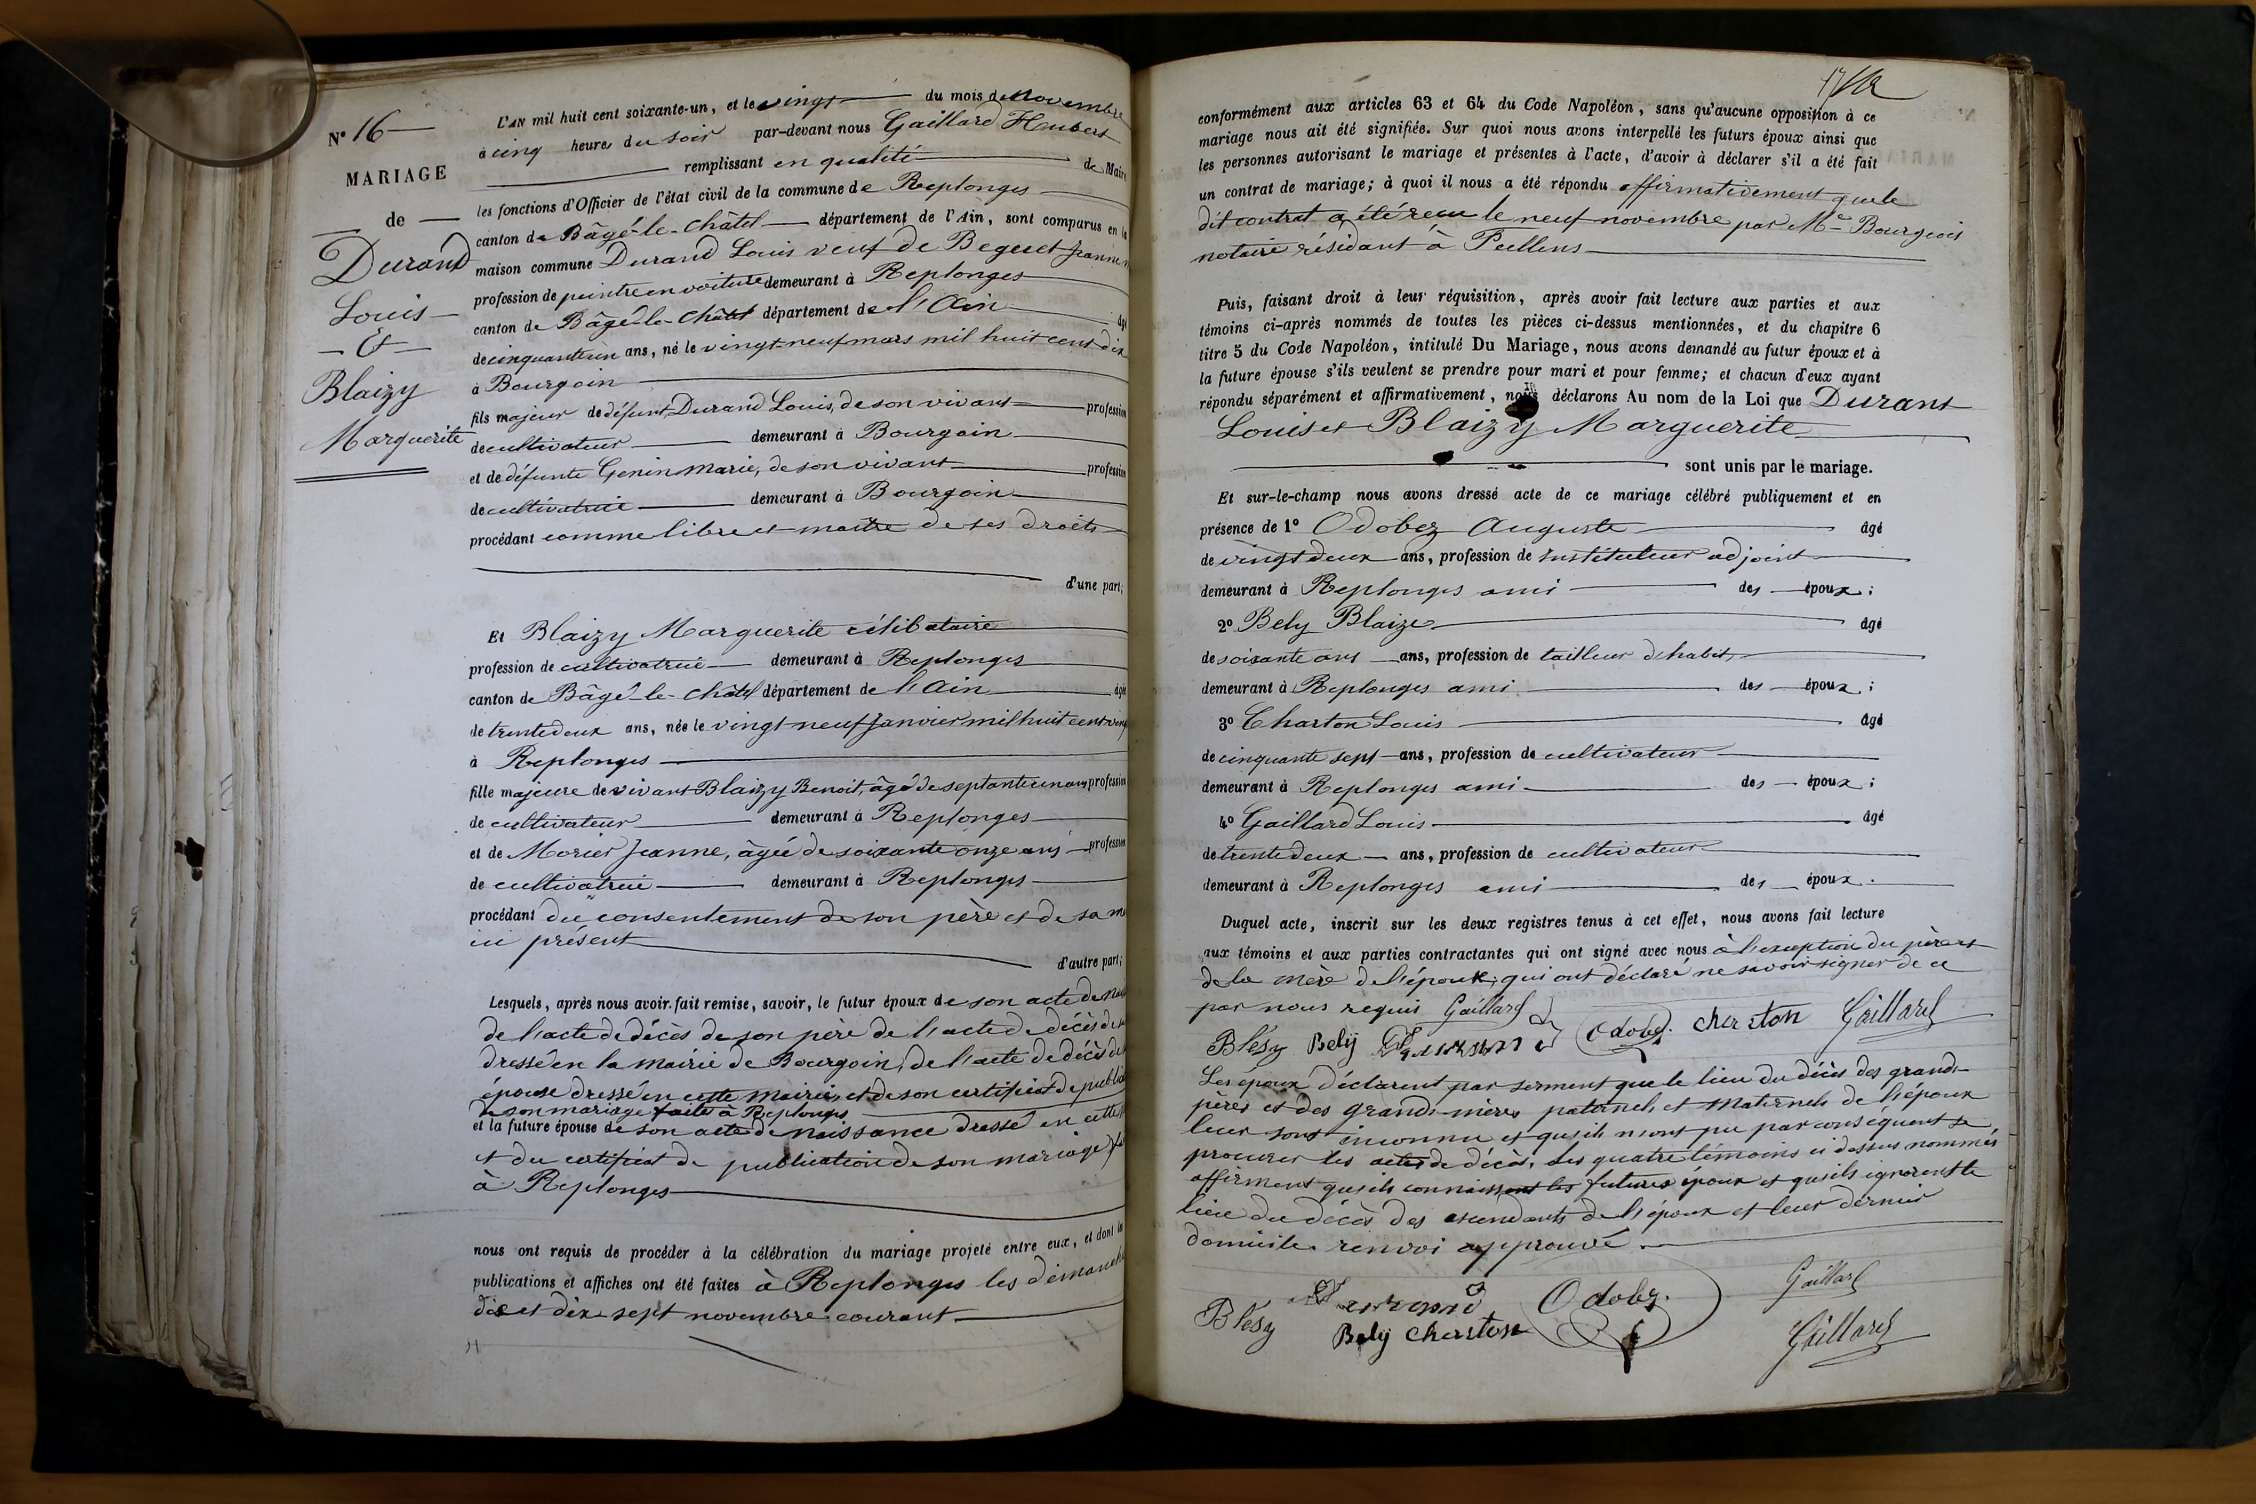 L'AN mil huit cent soixante-un, et le vingt du mois de Novembre
N° 16
à cinq heures du soir par-devant nous Gaillard Humbert
MARIAGE
remplissant en qualité de Maire
les fonctions d'Officier de l'état civil de la commune de Replonges
de
canton de Bâgé-le-Châtel département de l'Ain, sont comparus en la
Durand
maison commune Durand Louis veuf de Beguet Jeanne
profession de peintre en voiture demeurant à Replonges
Louis
canton de Bâgé-le-Châtel département de l'Ain âgé
Et
de cinquante un ans, né le vingt-neuf mars mil huit cent dix
Blaizy
à Bourgoin
fils majeur de défunt Durand Louis, de son vivant profession
Marguerite
de cultivateur demeurant à Bourgoin
et de défunte Genin Marie, de son vivant profession
de cultivatrice demeurant à Bourgoin
procédant comme libre et maître de ses droits
d'une part;
Et Blaizy Marguerite célibataire
profession de cultivatrice demeurant à Replonges
canton de Bâgé-le-Châtel département de l'Ain âgée
de trente deux ans, née le vingt neuf Janvier mil huit cent vingt
à Replonges
fille majeure de vivant Blaizy Benoit, âgé de septante un ans profession
de cultivateur demeurant à Replonges
et de Morier Jeanne, âgée de soixante onze ans profession
de cultivatrice demeurant à Replonges
procédant du consentement de son père et de sa
ici présent
d'autre part;
Lesquels, après nous avoir fait remise, savoir, le futur époux de son acte de
de l'acte de décès de son père de l'acte de décès de
dressé en la mairie de Bourgoin, de l'acte de décès de
épouse dressé en cette mairie, et de son certificat de
de son mariage faite à Replonges
et la future épouse de son acte de naissance dressé en cette
et du certificat de publication de son mariage
à Replonges
nous ont requis de procéder à la célébration du mariage projeté entre eux, et dont les
publications et affiches ont été faites à Replonges les dimanches
dix et dix-sept novembre courant
conformément aux articles 63 et 64 du Code Napoléon, sans qu'aucune opposition à ce
mariage nous ait été signifiée. Sur quoi nous avons interpellé les futurs époux ainsi que
les personnes autorisant le mariage et présentes à l'acte, d'avoir à déclarer s'il a été fait
un contrat de mariage; à quoi il nous a été répondu affirmativement que le
dit contrat a été reçu le neuf novembre par Me Bourgeois
notaire résidant à Feillens
Puis, faisant droit à leur réquisition, après avoir fait lecture aux parties et aux
témoins ci-après nommés de toutes les pièces ci-dessus mentionnées, et du chapitre 6
titre 5 du Code Napoléon, intitulé Du Mariage, nous avons demandé au futur époux et à
la future épouse s'ils veulent se prendre pour mari et pour femme; et chacun d'eux ayant
répondu séparément et affirmativement, nous déclarons Au nom de la Loi que Durant
Louis et Blaizy Marguerite
sont unis par le mariage.
Et sur-le-champ nous avons dressé acte de ce mariage célébré publiquement et en
présence de 1° Odobez Auguste âgé
de vingt deux ans, profession de Instituteur adjoint
demeurant à Replonges ami des époux;
2° Bely Blaize âgé
de soixante ans ans, profession de tailleur d'habits
demeurant à Replonges ami des époux;
3° Charton Louis âgé
de cinquante sept ans, profession de cultivateur
demeurant à Replonges ami des époux;
4° Gaillard Louis âgé
de trente deux ans, profession de cultivateur
demeurant à Replonges ami des époux.
Duquel acte, inscrit sur les deux registres tenus à cet effet, nous avons fait lecture
aux témoins et aux parties contractantes qui ont signé avec nous à l'exception du père et
de la mère de l'épouse, qui ont déclaré ne savoir signer de ce
par nous requis Gaillard
Blésy Bely Durand Odobez. Charton Gaillard
Les époux déclarent par serment que le lieu du décès des grands-
pères et des grands-mères paternels et maternels de l'époux
leur sont inconnu et qu'ils n'ont pu par conséquent se
procurer les actes de décès. Les quatre témoins ci dessus nommés
affirment qu'ils connaissent les futurs époux et qu'ils ignorent le
lieu du décès des ascendants de l'époux et leur dernier
domicile. renvoi approuvé.
Durand Odobez. Gaillard
Blésy Bely Charton Gaillard